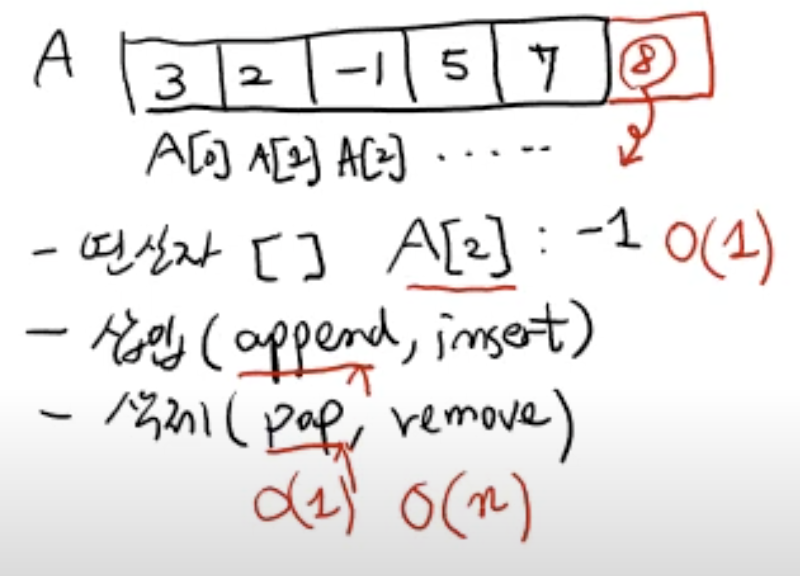 A 3 2 -1 5 7 8
A[0] A[1] A[2] ......
- 연산자 [ ] A[2] : -1 O(1)
- 삽입 (append, insert)
- 삭제 (pop, remove)
O(1) O(n)